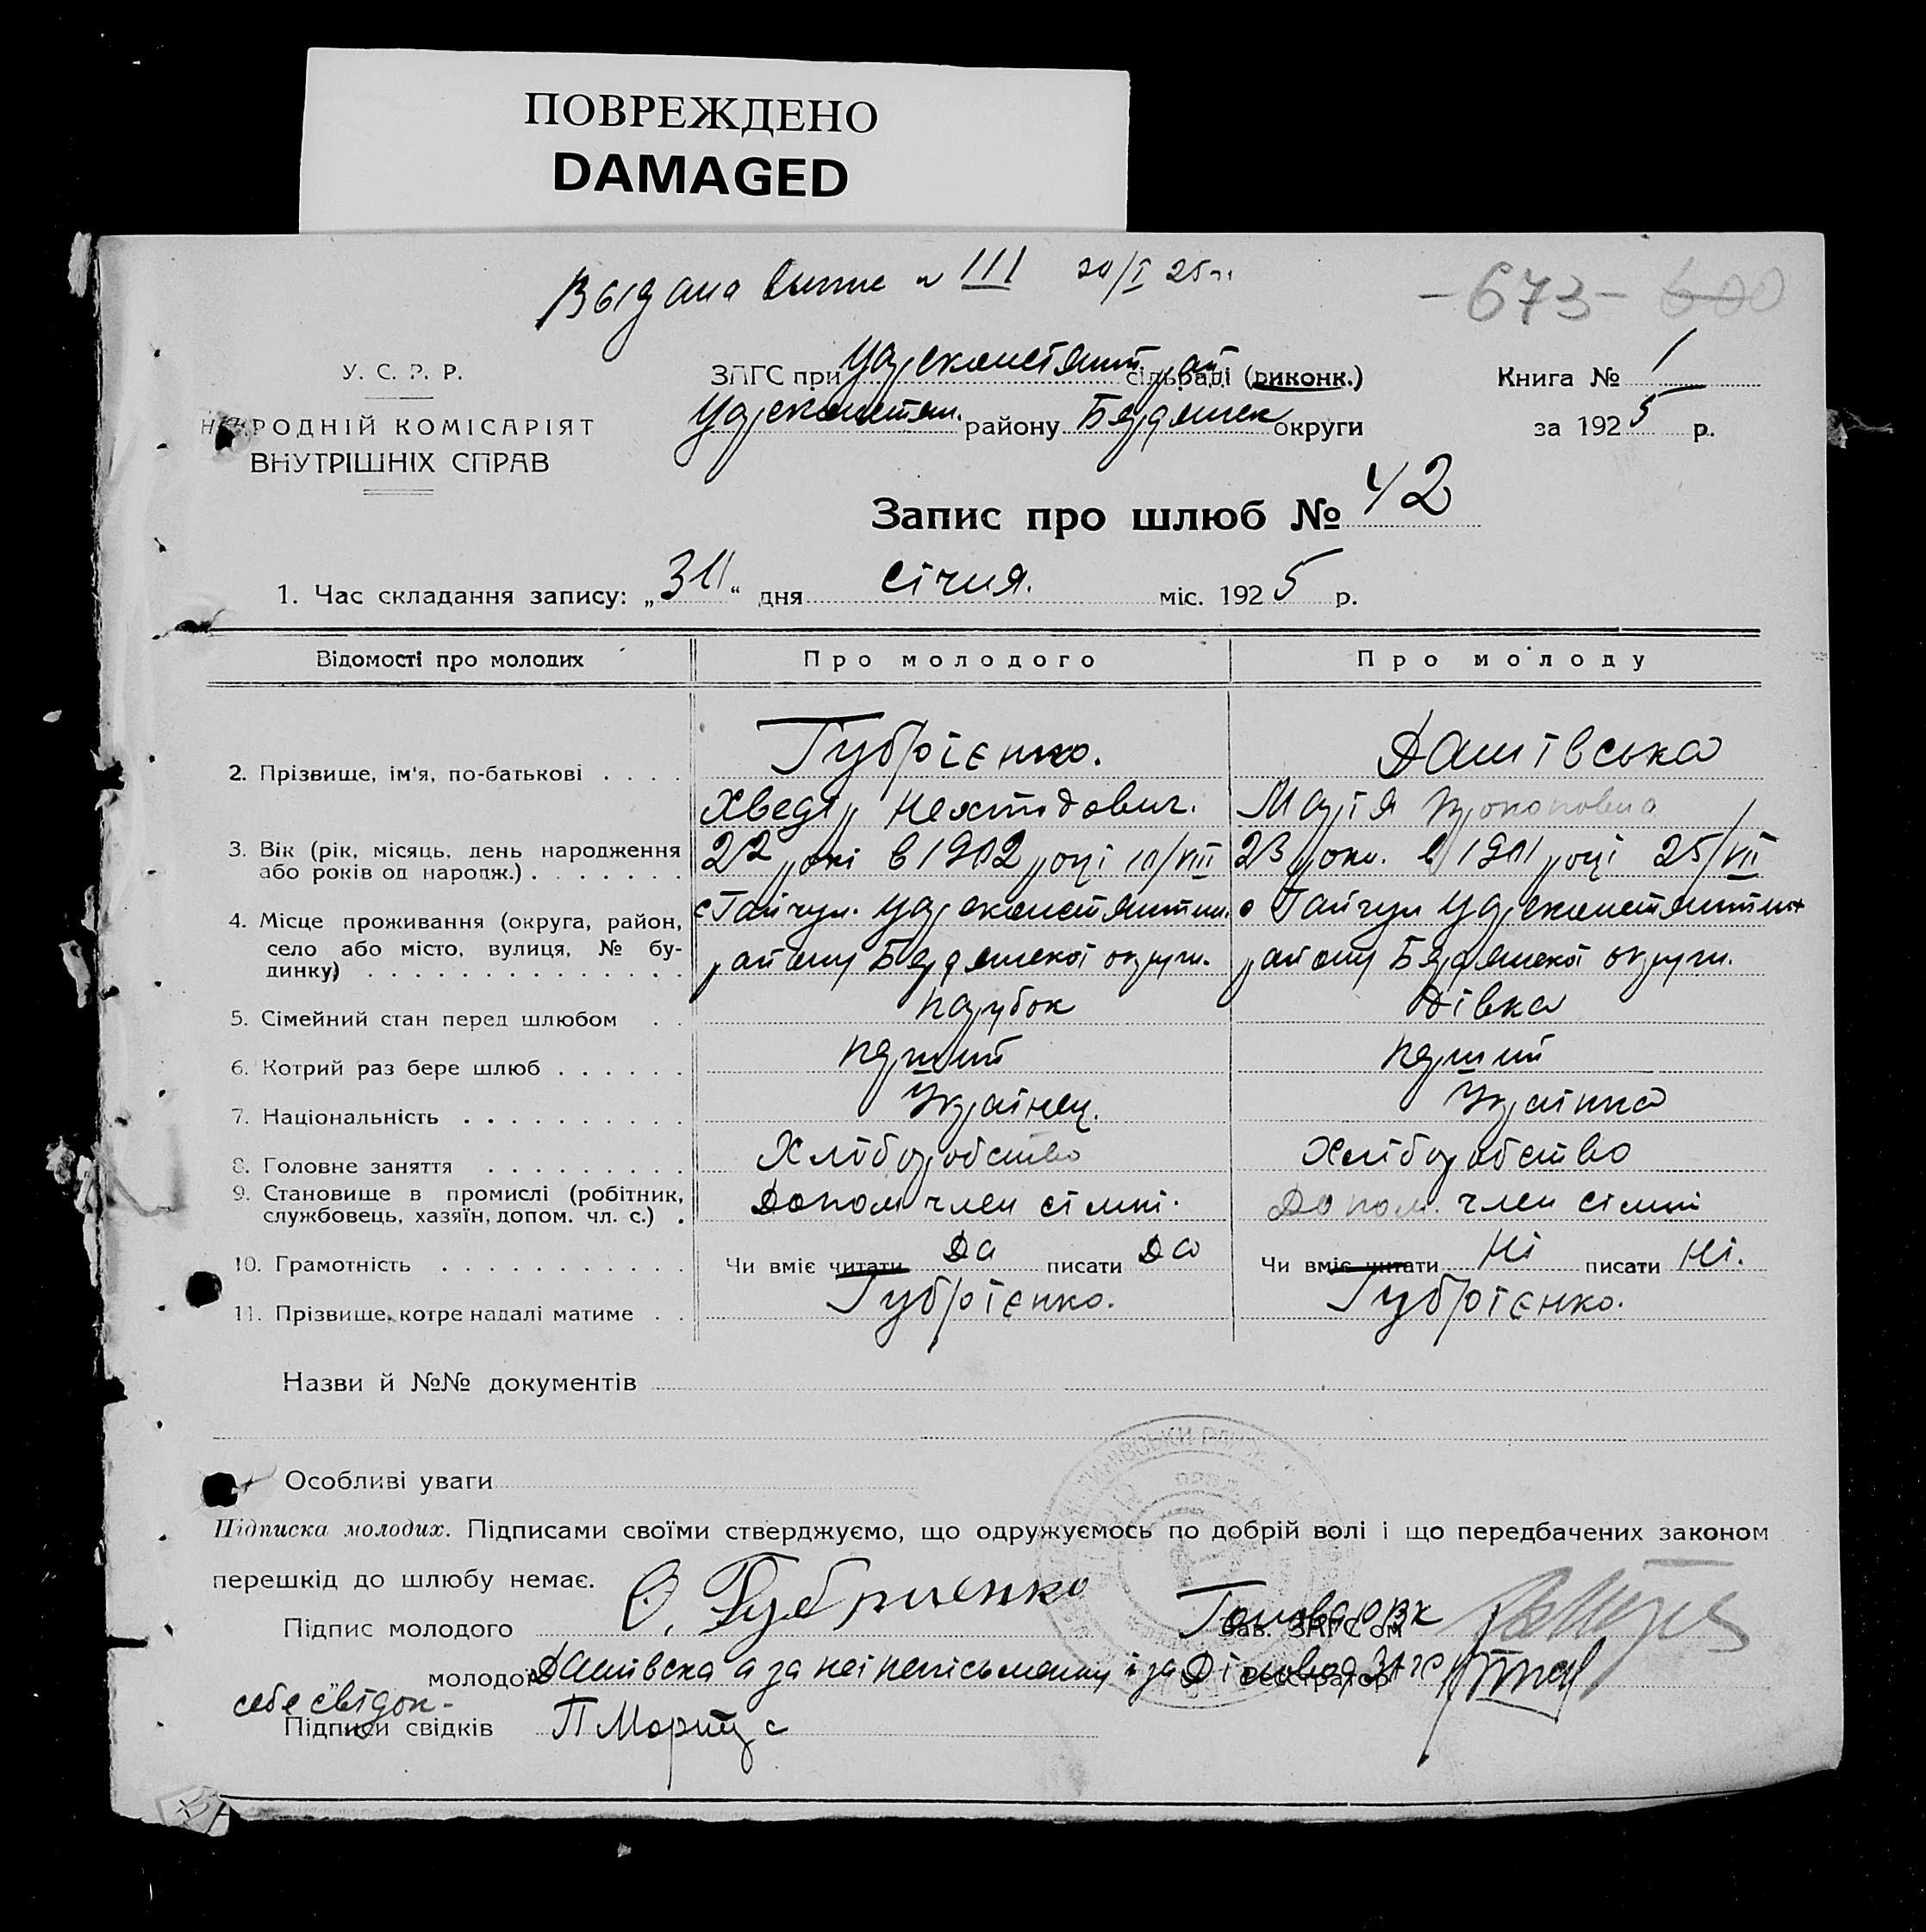 ПОВРЕЖДЕНО
DAMAGED
Выдана выпис № 111 20/I 25 г.
-673- 600
У. С. Р. Р.
НАРОДНІЙ КОМІСАРІЯТ
ВНУТРІШНІХ СПРАВ
ЗАГС при Цареконстянт рай. сільраді (виконк.)
Цареконстян. району Бердянск округи
Книга № 1
за 1925 р.
Запис про шлюб № 42
1. Час складання запису: „31“ дня січня. міс. 1925 р.
Відомості про молодих Про молодого Про молоду
2. Прізвище, ім'я, по-батькові Губрієнко. Даншівська
Хведір Марія Прокоповна
3. Вік (рік, місяць, день народження або років од народж.) 22 роки в 1902 році 10/VIII 23 роки. в 1901 році 25/VII
4. Місце проживання (округа, район, село або місто, вулиця, № будинку) с Гайчул. Цареконстянтин. с Гайчул Цареконстянтин
району Бердянської округи. району Бердянської округи.
5. Сімейний стан перед шлюбом парубок дівка
6. Котрий раз бере шлюб перший перший
7. Національність Українец. Українка
8. Головне заняття Хліборобство Хліборобство
9. Становище в промислі (робітник, службовець, хазяїн, допом. чл. с.) Допом член сімні. Допом. член сімні
10. Грамотність Чи вміє читати Да писати Да Чи вміє читати Ні писати Ні.
11. Прізвище, котре надалі матиме Губрієнко. Губрієнко.
Назви й №№ документів
Особливі уваги
Підписка молодих. Підписами своїми стверджуємо, що одружуємось по добрій волі і що передбачених законом
перешкід до шлюбу немає.
Підпис молодого Ѳ. Губриенко Голова РВК Зав. ЗАГС'ом
молодої а за неї неписьменну і за Діловод ЗАГС Реєстратор
себе свідок-
Підписи свідків П Мориц